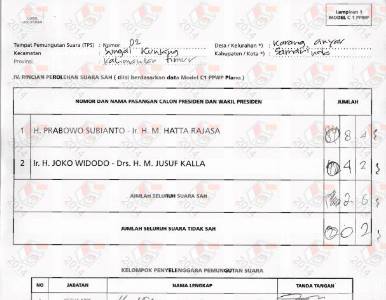 Lampiran 1
MODEL C 1 PPWP
Tempat Pemungutan Suara (TPS) : Nomor 02 Desa / Kelurahan *) : Karang anyar
Kecamatan : Sungai Kunjang Kabupaten / Kota *) : Samarinda
Provinsi : Kalimantan Timur
IV. RINCIAN PEROLEHAN SUARA SAH ( diisi berdasarkan data Model C1 PPWP Plano )
NOMOR DAN NAMA PASANGAN CALON PRESIDEN DAN WAKIL PRESIDEN JUMLAH
1 H. PRABOWO SUBIANTO - Ir. H. M. HATTA RAJASA 0 8 4
2 Ir. H. JOKO WIDODO - Drs. H. M. JUSUF KALLA 0 4 2
JUMLAH SELURUH SUARA SAH 1 2 6
JUMLAH SELURUH SUARA TIDAK SAH 0 0 2
KELOMPOK PENYELENGGARA PEMUNGUTAN SUARA
NO JABATAN NAMA LENGKAP TANDA TANGAN